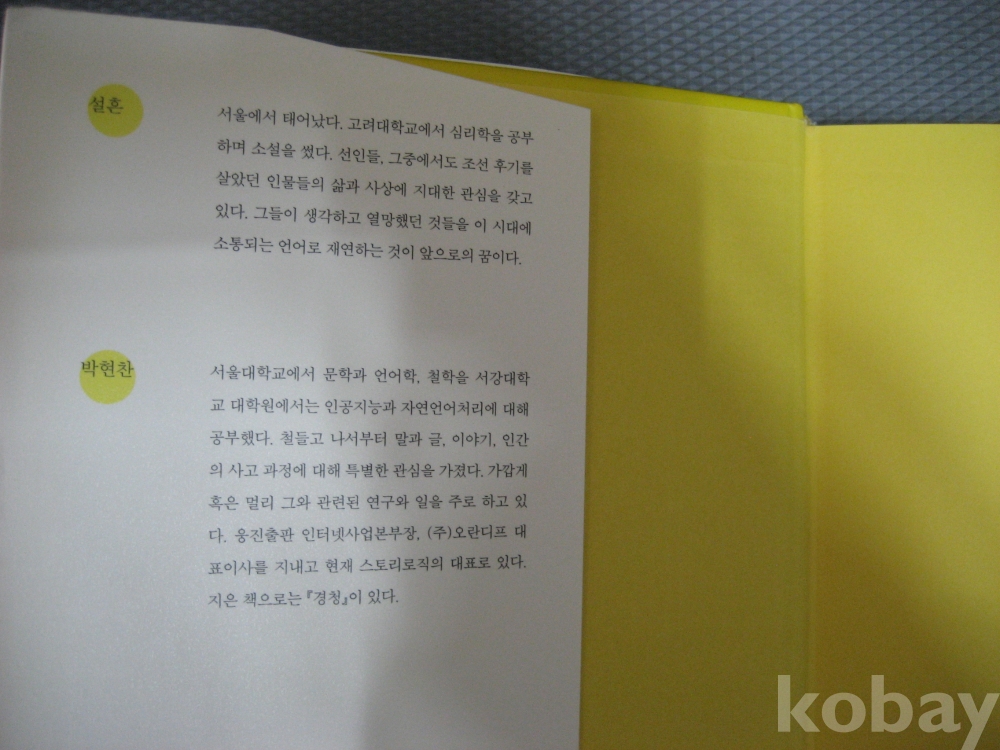 설흔
서울에서 태어났다. 고려대학교에서 심리학을 공부
하며 소설을 썼다. 선인들, 그중에서도 조선 후기를
살았던 인물들의 삶과 사상에 지대한 관심을 갖고
있다. 그들이 생각하고 열망했던 것들을 이 시대에
소통되는 언어로 재연하는 것이 앞으로의 꿈이다.
박현찬
서울대학교에서 문학과 언어학, 철학을 서강대학
교 대학원에서는 인공지능과 자연언어처리에 대해
공부했다. 철들고 나서부터 말과 글, 이야기, 인간
의 사고 과정에 대해 특별한 관심을 가졌다. 가깝게
혹은 멀리 그와 관련된 연구와 일을 주로 하고 있
다. 웅진출판 인터넷사업본부장, (주)오란디프 대
표이사를 지내고 현재 스토리로직의 대표로 있다.
지은 책으로는 『경청』이 있다.
kobay